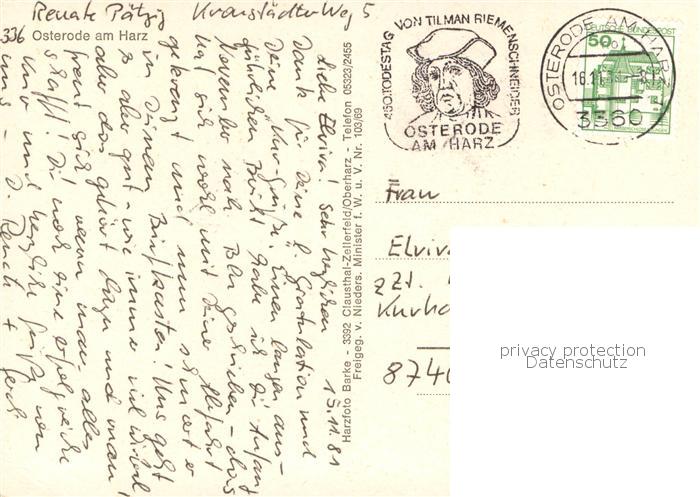 Renate Pätzig Kronstädter Weg 5
336 Osterode am Harz
15.11.81
Liebe Elvira! Sehr herzlichen
Dank für Deine l. Gratulation und
Deine Kur-Grüße. Einen langen aus-
führlichen Brief habe ich Dir Anfang
November nach Bln geschrieben - das
hat sich wohl mit Deine Abfahrt
gekreuzt und nun schmort er
in Deinem Briefkasten! Uns geht
es aber gut - wie immer viel Wirbel
aber das gehört dazu und man
freut sich wenn man alles
schafft! Dir noch eine erfolgreiche
Kur und herzliche Grüße von
uns - D. Renate +
Harzfoto Barke - 3392 Clausthal-Zellerfeld/Oberharz - Telefon 05323/2455
Freigeg. v. Nieders. Minister f. W. u. V. Nr. 103/69
450. TODESTAG VON TILMAN RIEMENSCHNEIDER
OSTERODE
AM HARZ
OSTERODE AM HARZ
16.11.
3360
DEUTSCHE BUNDESPOST
50
Frau
Elvira
zzt.
Kurh
8740
privacy protection
Datenschutz